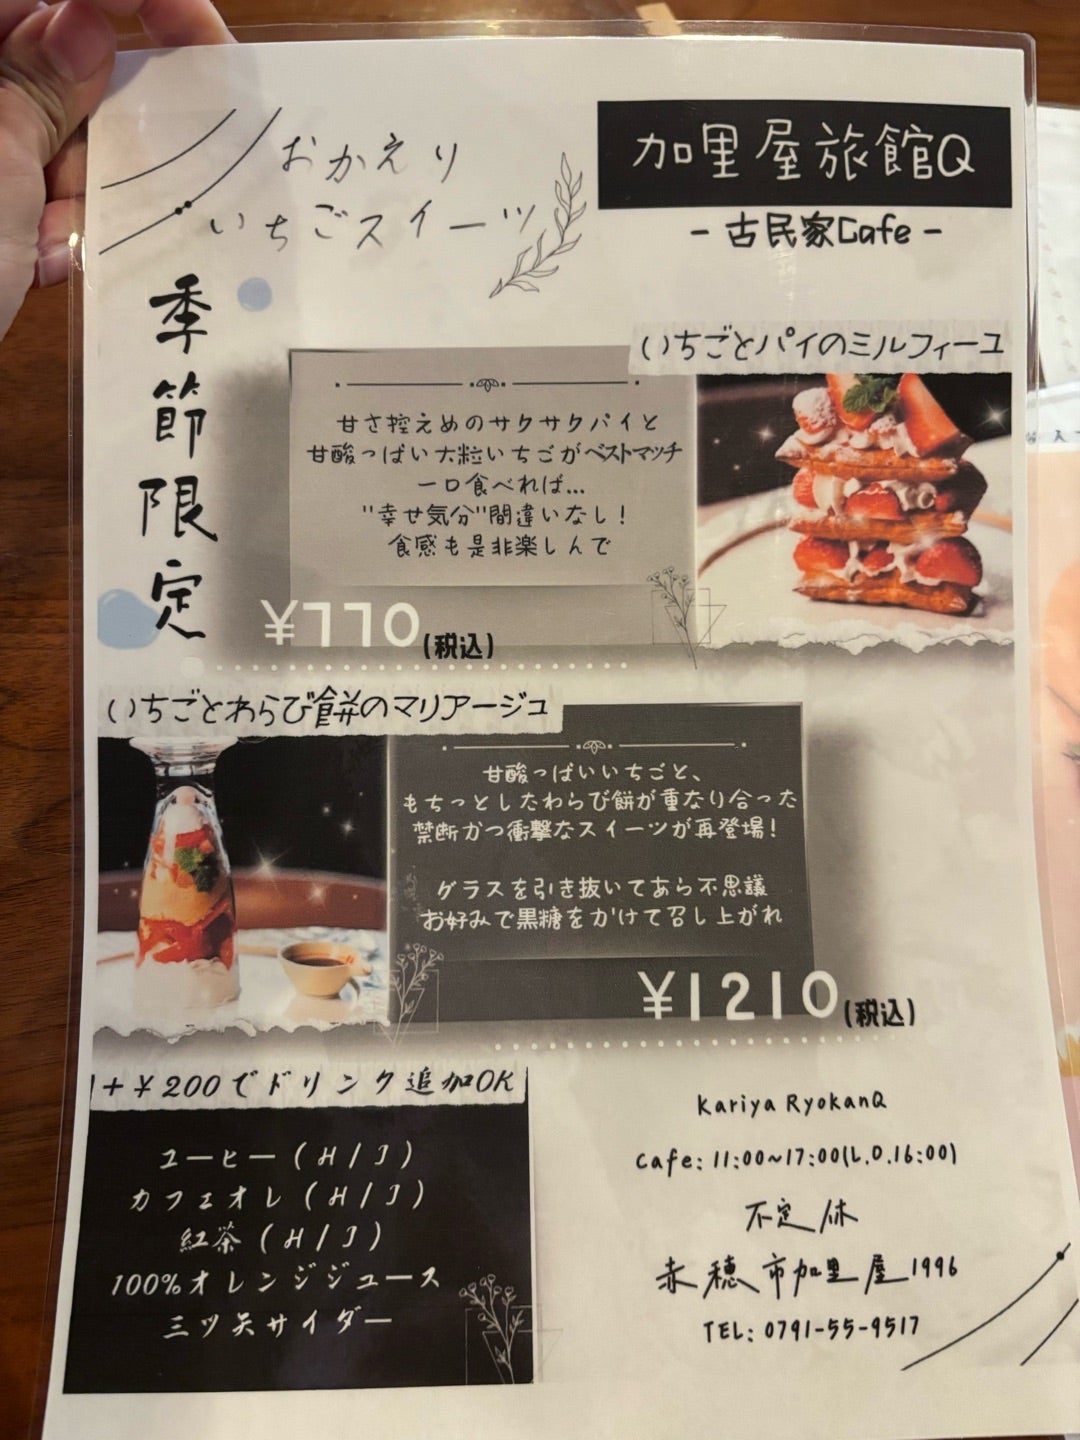 おかえり
いちごスイーツ
加里屋旅館Q
- 古民家Cafe -
季節限定
いちごとパイのミルフィーユ
甘さ控えめのサクサクパイと
甘酸っぱい大粒いちごがベストマッチ
一口食べれば…
"幸せ気分"間違いなし!
食感も是非楽しんで
¥770(税込)
いちごとわらび餅のマリアージュ
甘酸っぱいいちごと、
もちっとしたわらび餅が重なり合った
禁断かつ衝撃なスイーツが再登場!
グラスを引き抜いてあら不思議
お好みで黒糖をかけて召し上がれ
¥1210(税込)
+¥200でドリンク追加OK
コーヒー(H/I)
カフェオレ(H/I)
紅茶(H/I)
100%オレンジジュース
三ツ矢サイダー
Kariya RyokanQ
Cafe: 11:00~17:00(L.O.16:00)
不定休
赤穂市加里屋1996
TEL: 0791-55-9517